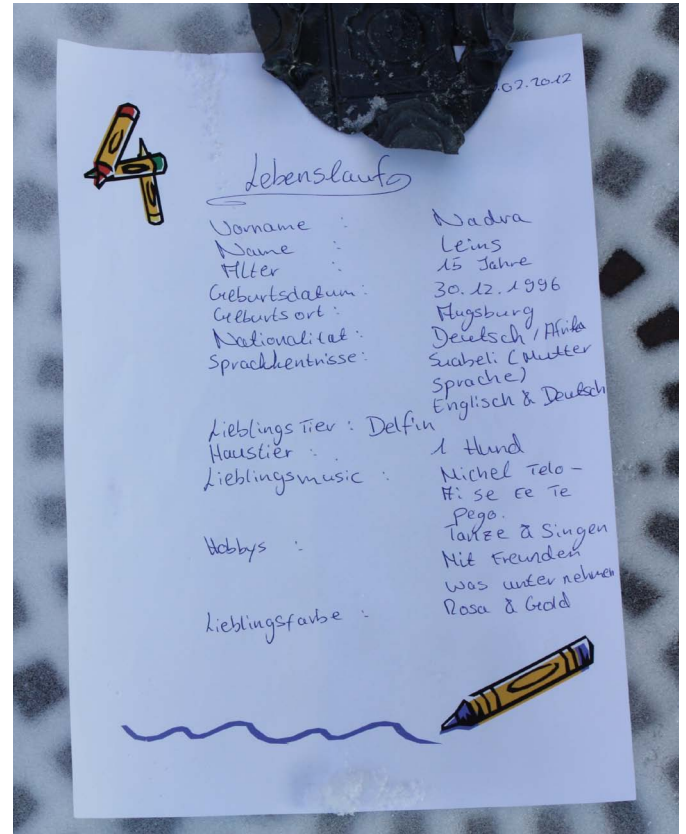 .02.2012
Lebenslauf
Vorname : Nadra
Name : Leins
Alter : 15 Jahre
Geburtsdatum : 30.12.1996
Geburtsort : Augsburg
Nationalität : Deutsch / Afrika
Sprachkentnisse : Suabeli (Mutter
Sprache)
Englisch & Deutsch
Lieblings Tier : Delfin
Haustier : 1 Hund
Lieblingsmusic : Michel Telo -
Ai se Ee Te
Pego.
Hobbys : Tanze & Singen
Mit Freunden
was unter nehmen
Lieblingsfarbe : Rosa & Gold